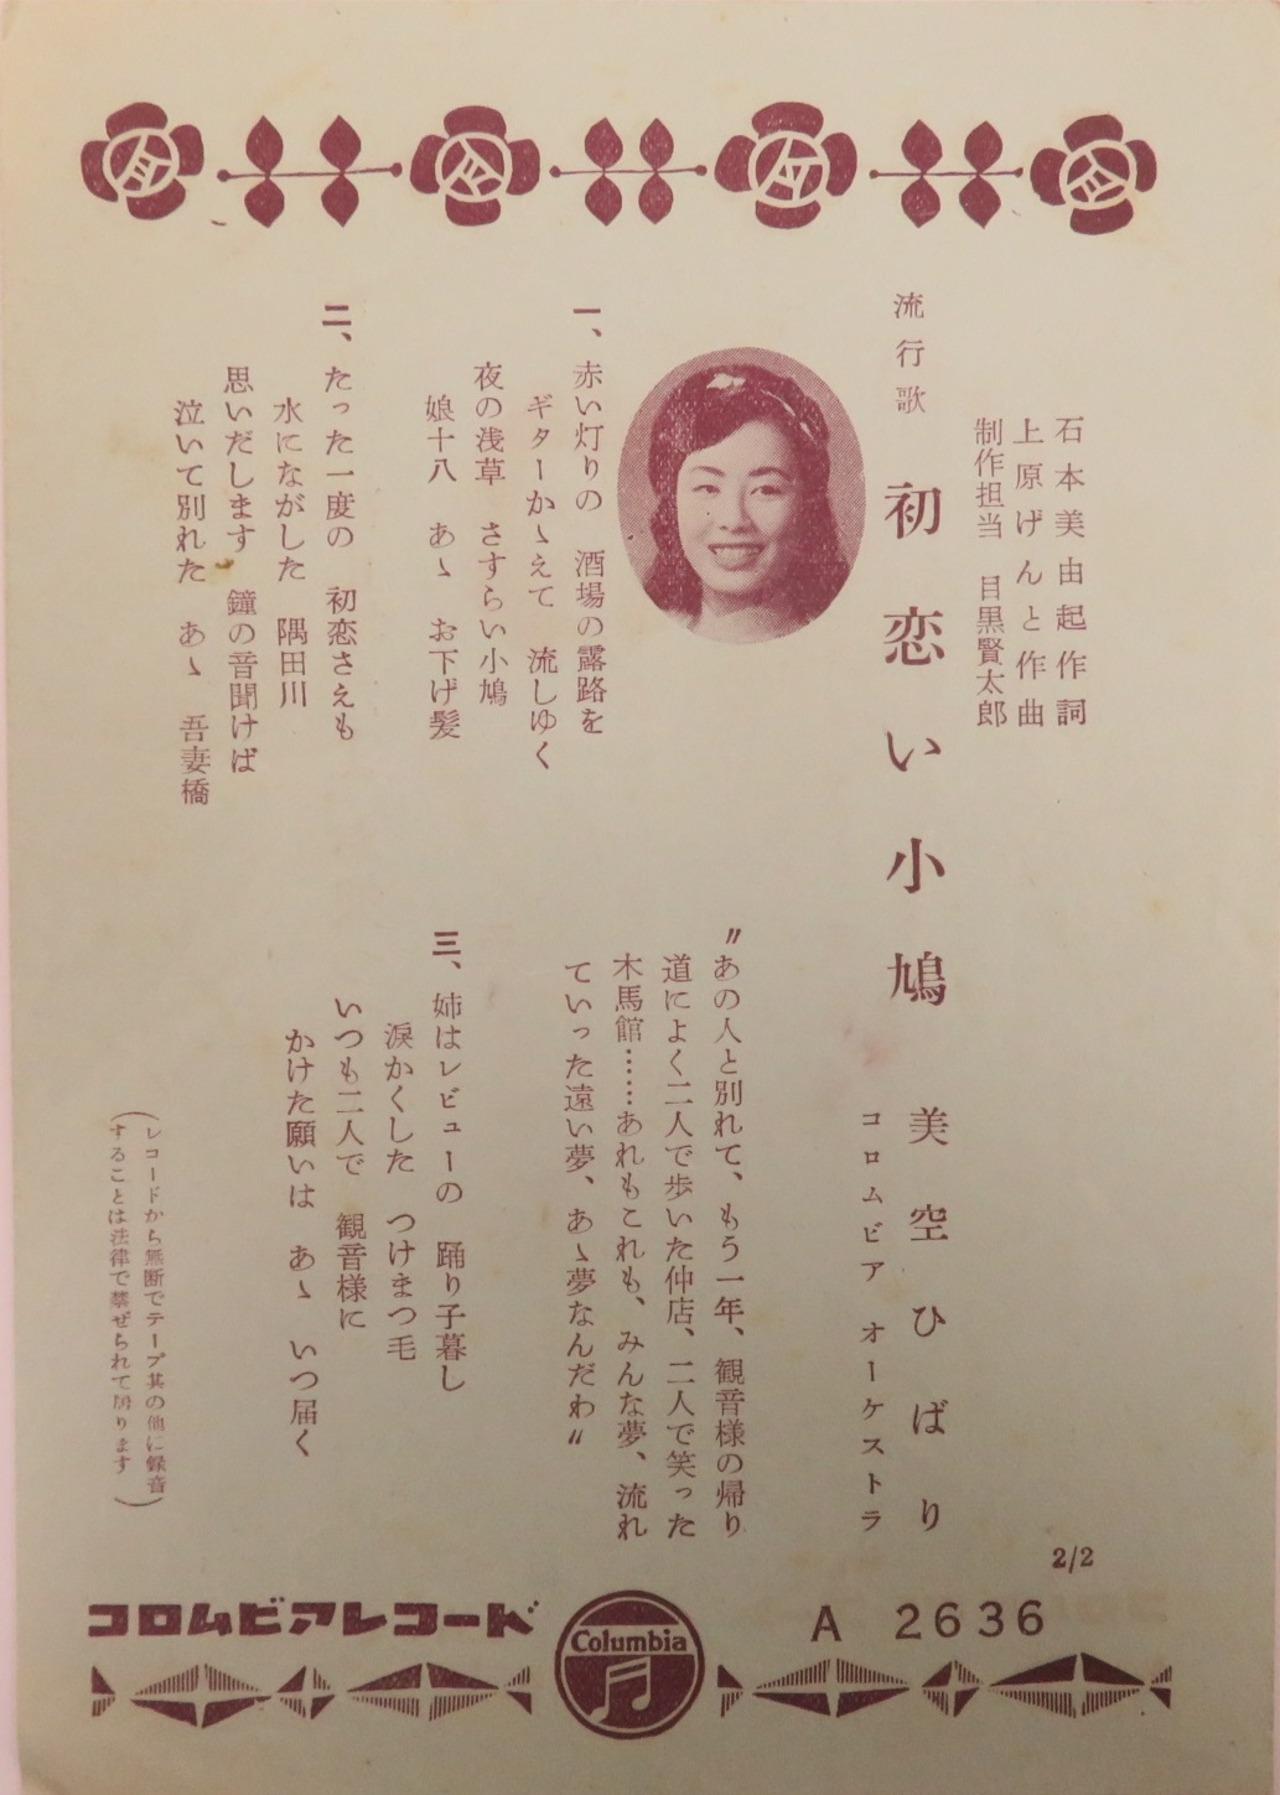 石本美由起作詞
上原げんと作曲
制作担当　目黒賢太郎
流行歌　初恋い小鳩　美空ひばり
コロムビア オーケストラ
一、赤い灯りの　酒場の露路を
ギターかゝえて　流しゆく
夜の浅草　さすらい小鳩
娘十八　あゝ　お下げ髪
二、たった一度の　初恋さえも
水にながした　隅田川
思いだします　鐘の音聞けば
泣いて別れた　あゝ　吾妻橋
〃あの人と別れて、もう一年、観音様の帰り
道によく二人で歩いた仲店、二人で笑った
木馬館……あれもこれも、みんな夢、流れ
ていった遠い夢、あゝ夢なんだわ〃
三、姉はレビューの　踊り子暮し
涙かくした　つけまつ毛
いつも二人で　観音様に
かけた願いは　あゝ　いつ届く
（レコードから無断でテープ其の他に録音
することは法律で禁ぜられて居ります）
2/2
コロムビアレコード
Columbia
A 2636